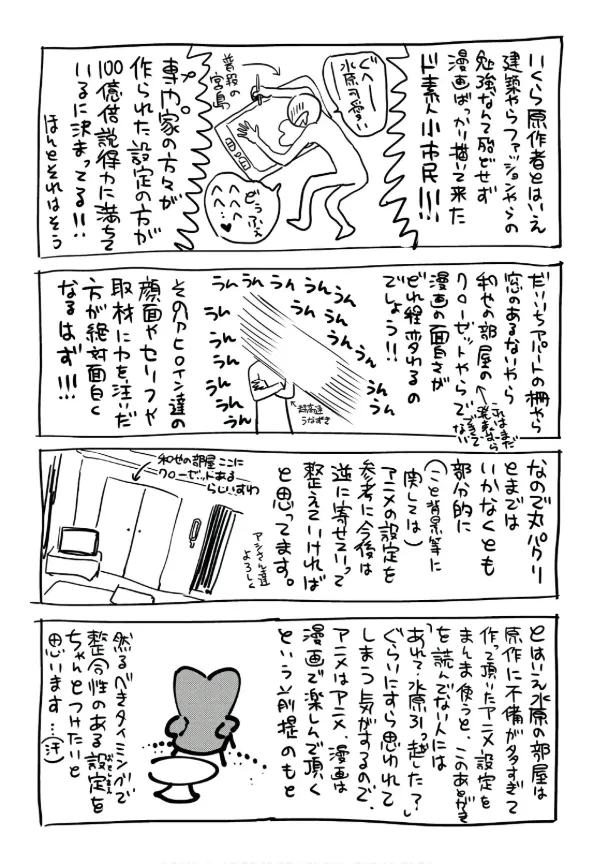 いくら原作者とはいえ
建築やらファッションやらの
勉強なんて殆どせず
漫画ばっかり描いて来た
ド素人小市民!!!
ぐへー
水原可愛い
普段の
宮島
どぅふぇ
へへへ
へ♥
専門家の方々が
プロ
作られた設定の方が
100億倍説得力に満ちて
いるに決まってる!!
ほんとそれはそう
だいいちアパートの柵やら
窓のあるないやら
和也の部屋の
クローゼットやらで、
←これはまだ
発表すら
できて
ない
漫画の面白さが
どれ程変わるの
でしょう!!
うんうんうんうんうんうんうんうん
うんうんうんうんうん
↑超高速
うなずき
そのアヒロイン達の
顔面やセリフや
取材に力を注いだ
方が絶対面白く
なるはず!!!
なので丸パクリ
とまでは
いかなくとも
部分的に
(こと背景等に
関しては)
アニメの設定を
参考に今後は
逆に寄せていって
整えていければ
と思ってます。
和也の部屋ここに
クローゼットある
らしいすわ
アシさん達
よろしく
とはいえ水原の部屋は
原作に不備が多すぎて
作って頂いたアニメ設定を
まんま使うと、このあとがき
を読んでない人には
「あれ?水原引っ越した?」
ぐらいにすら思われて
しまう気がするので、
アニメはアニメ、漫画は
漫画で楽しんで頂く
という前提のもと
然るべきタイミングで
整合性のある設定を
ちゃんとつけたいと
思います…(汗)